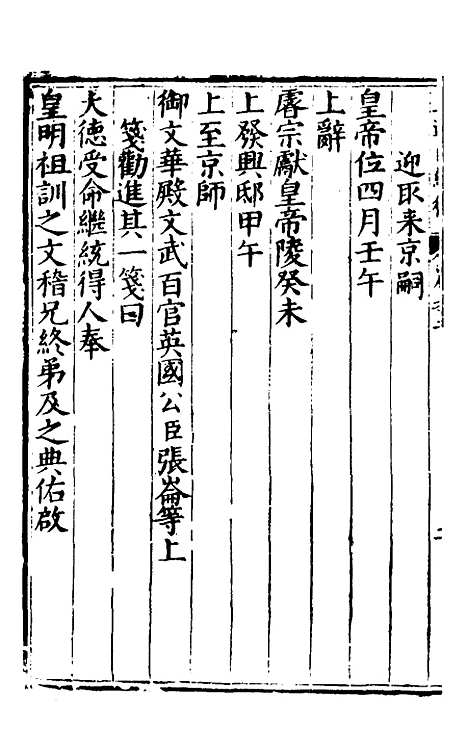 迎取来京嗣
皇帝位四月壬午
上辭
睿宗獻皇帝陵癸未
上發興邸甲午
上至京師
御文華殿文武百官英國公臣張崙等上
箋勸進其一箋曰
大德受命繼統得人奉
皇明祖訓之文稽兄終弟及之典佑啟